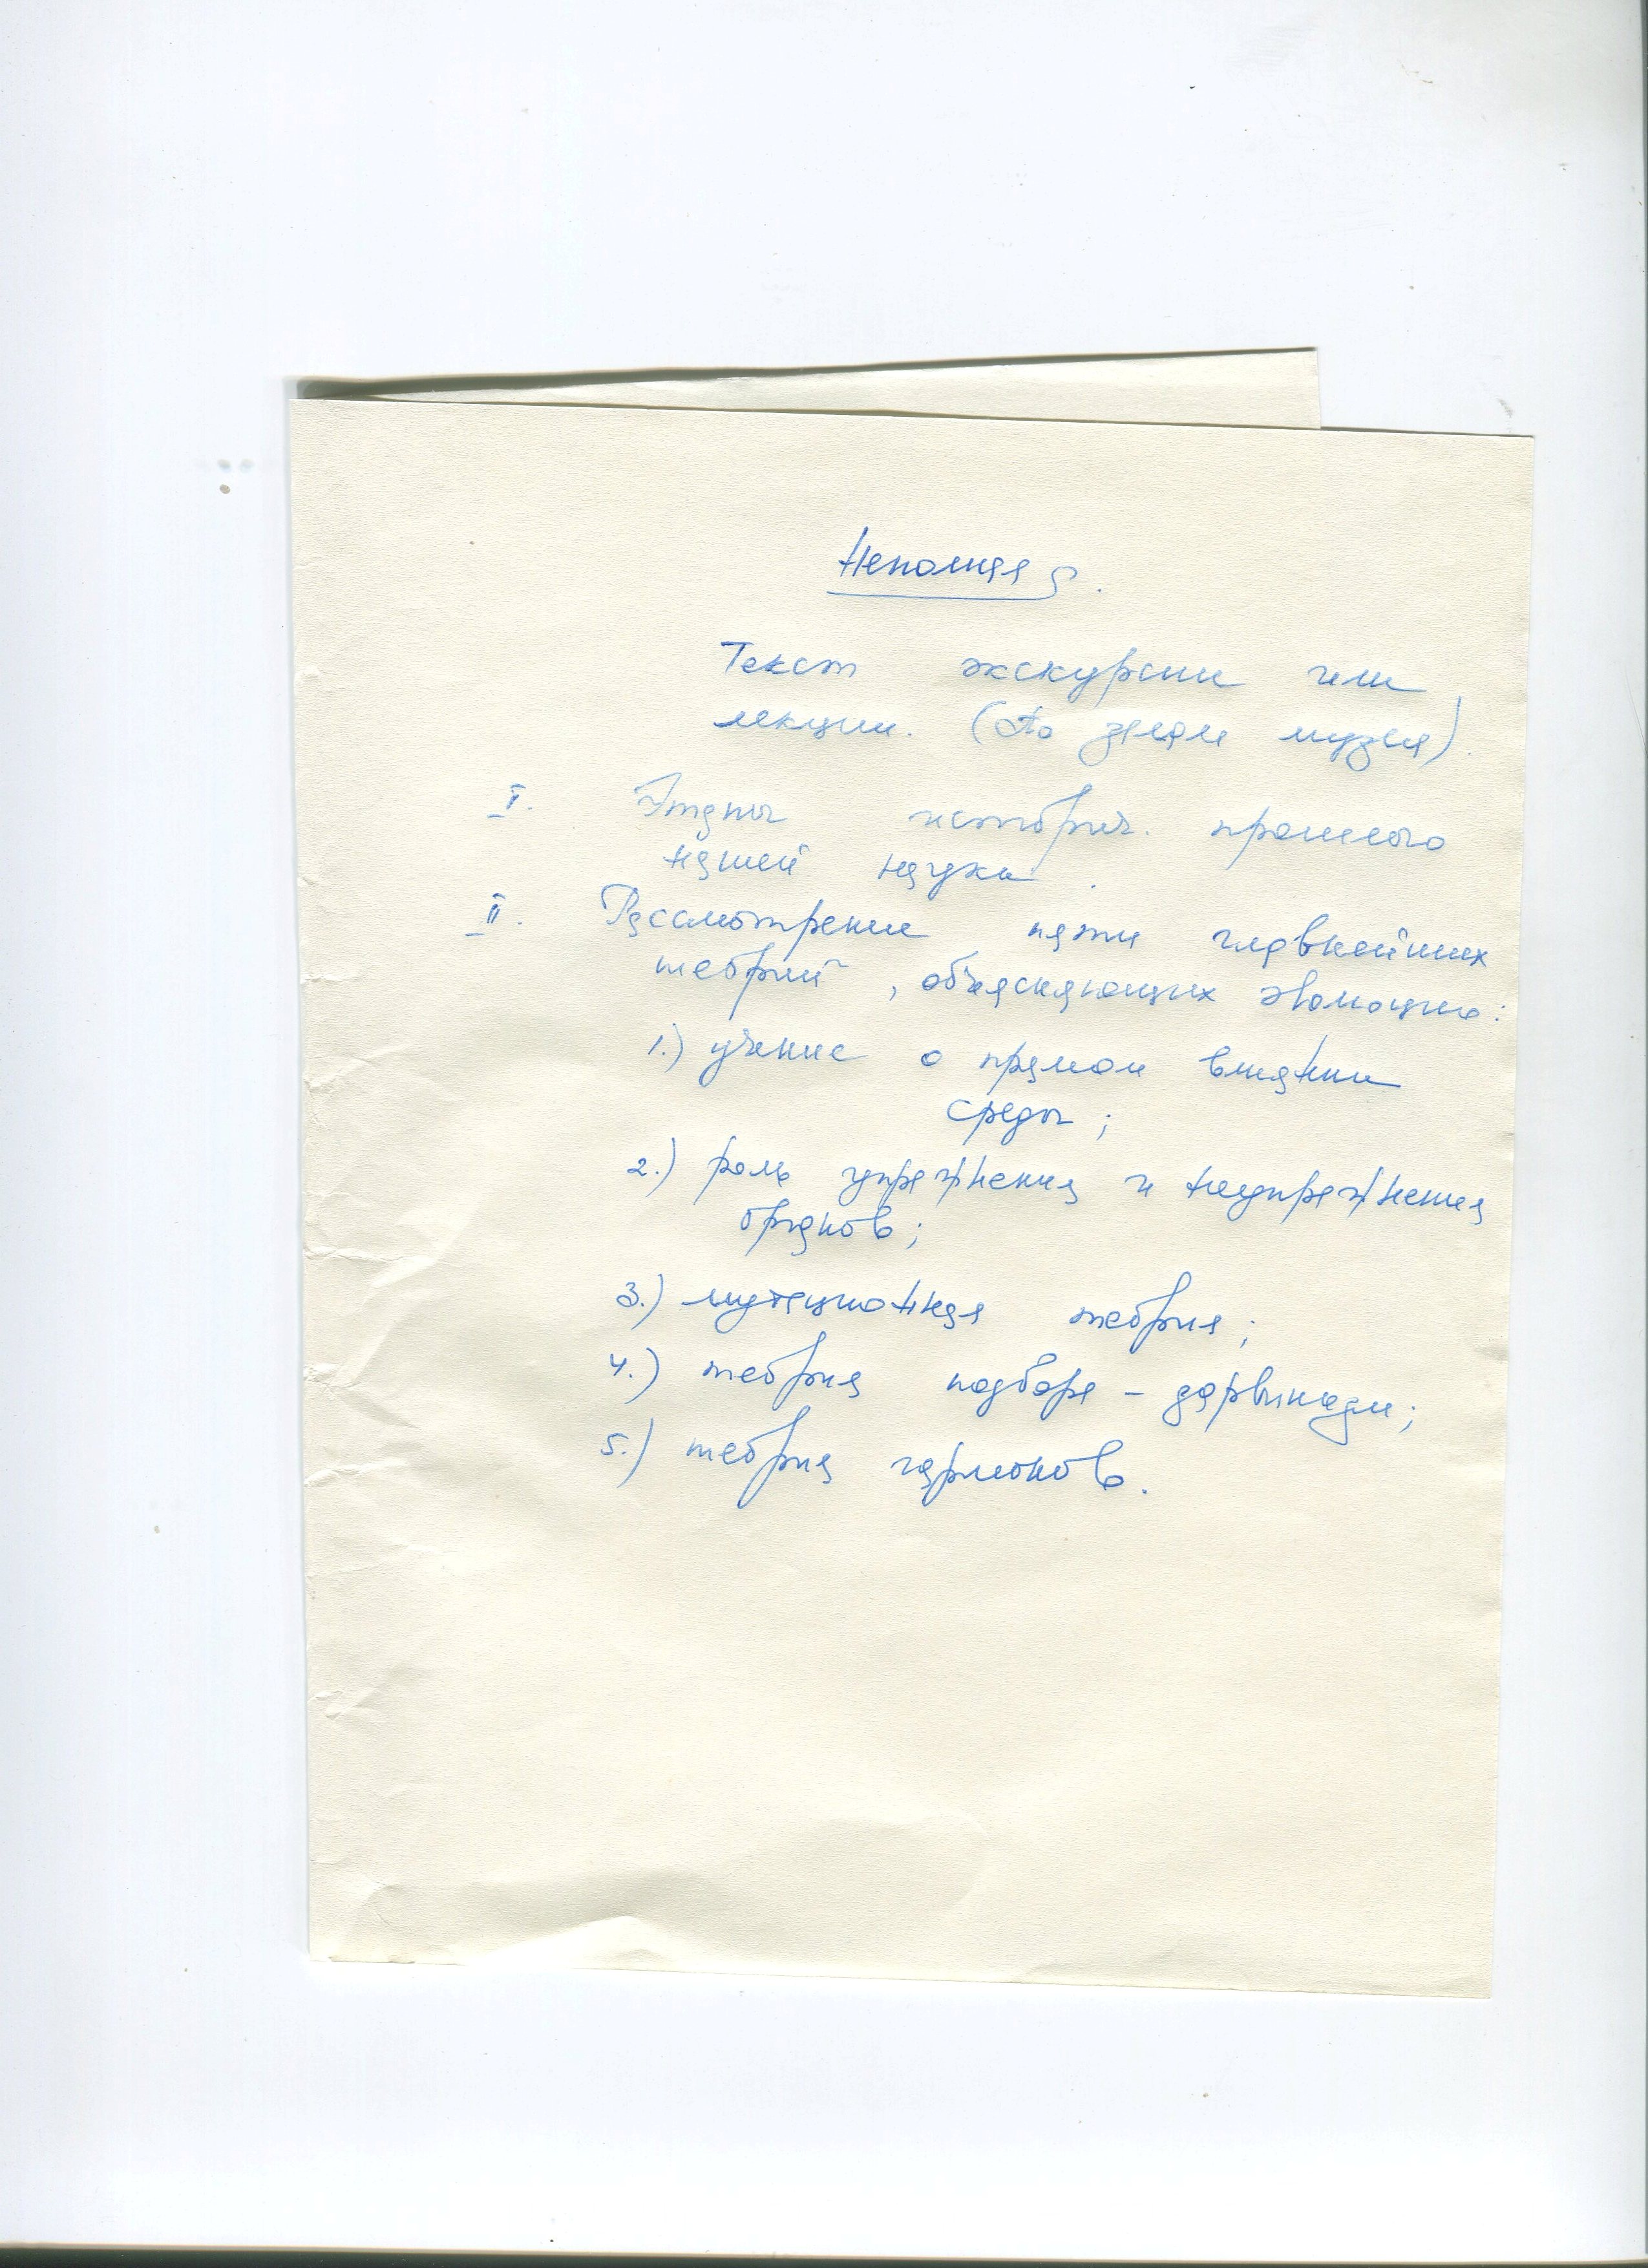 Неполная.
Текст экскурсии или
лекции. (По залам музея).
I. Этапы историч. прошлого
нашей науки.
II. Рассмотрение пяти главнейших
теорий, объясняющих эволюцию:
1.) учение о прямом влиянии
среды;
2.) роль упражнения и неупражнения
органов;
3.) мутационная теория;
4.) теория подбора – дарвинизм;
5.) теория гармонов.